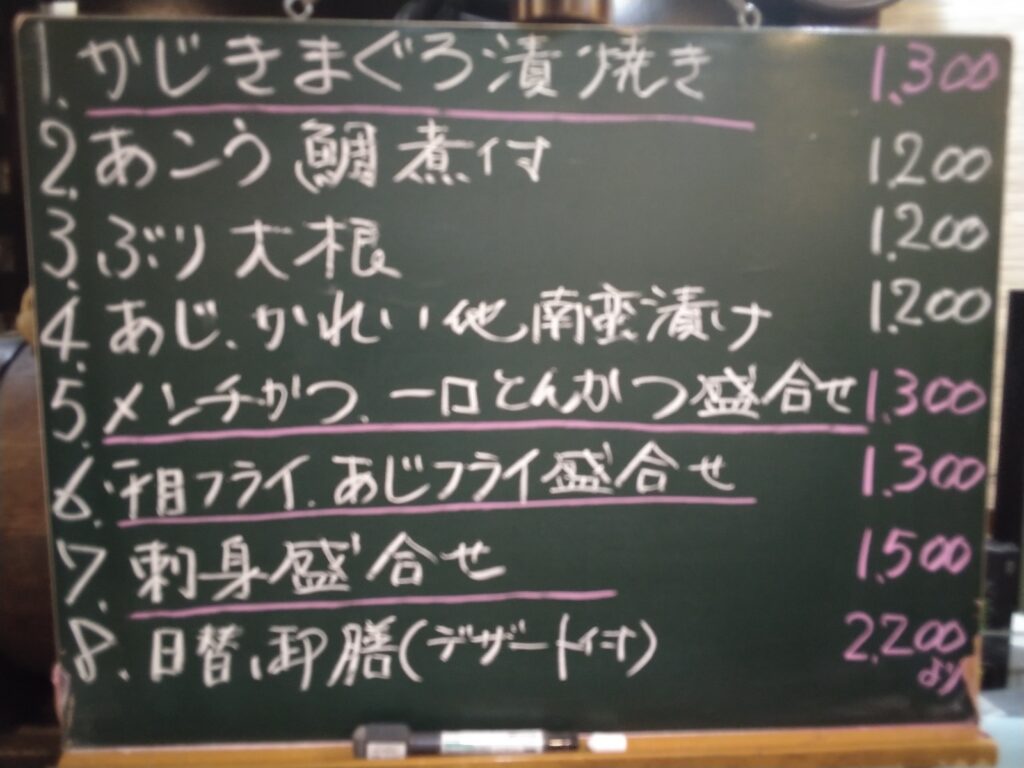 1. かじきまぐろ漬焼き 1,300
2. あこう鯛煮付 1,200
3. ぶり大根 1,200
4. あじ、かれい他南蛮漬け 1,200
5. メンチかつ、一口とんかつ盛合せ 1,300
6. 平目フライ、あじフライ盛合せ 1,300
7. 刺身盛合せ 1,500
8. 日替り御膳(デザート付) 2,200
より